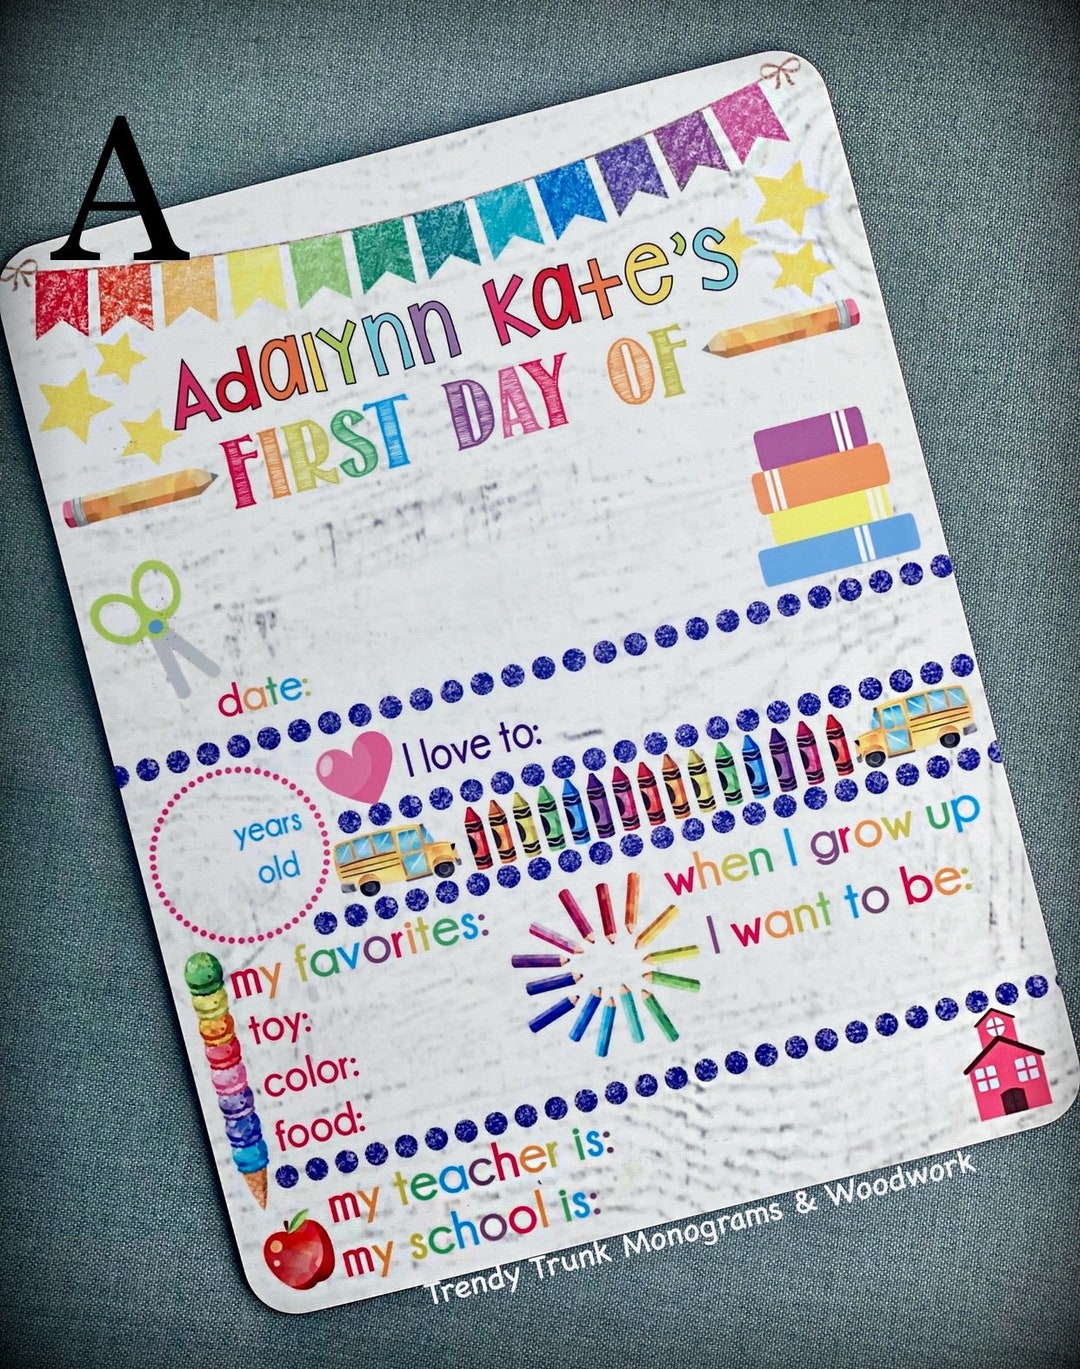 A
Adalynn Kate's
FIRST DAY OF
date:
I love to:
years
old
when I grow up
I want to be:
my favorites:
toy:
color:
food:
my teacher is:
my school is:
Trendy Trunk Monograms & Woodwork